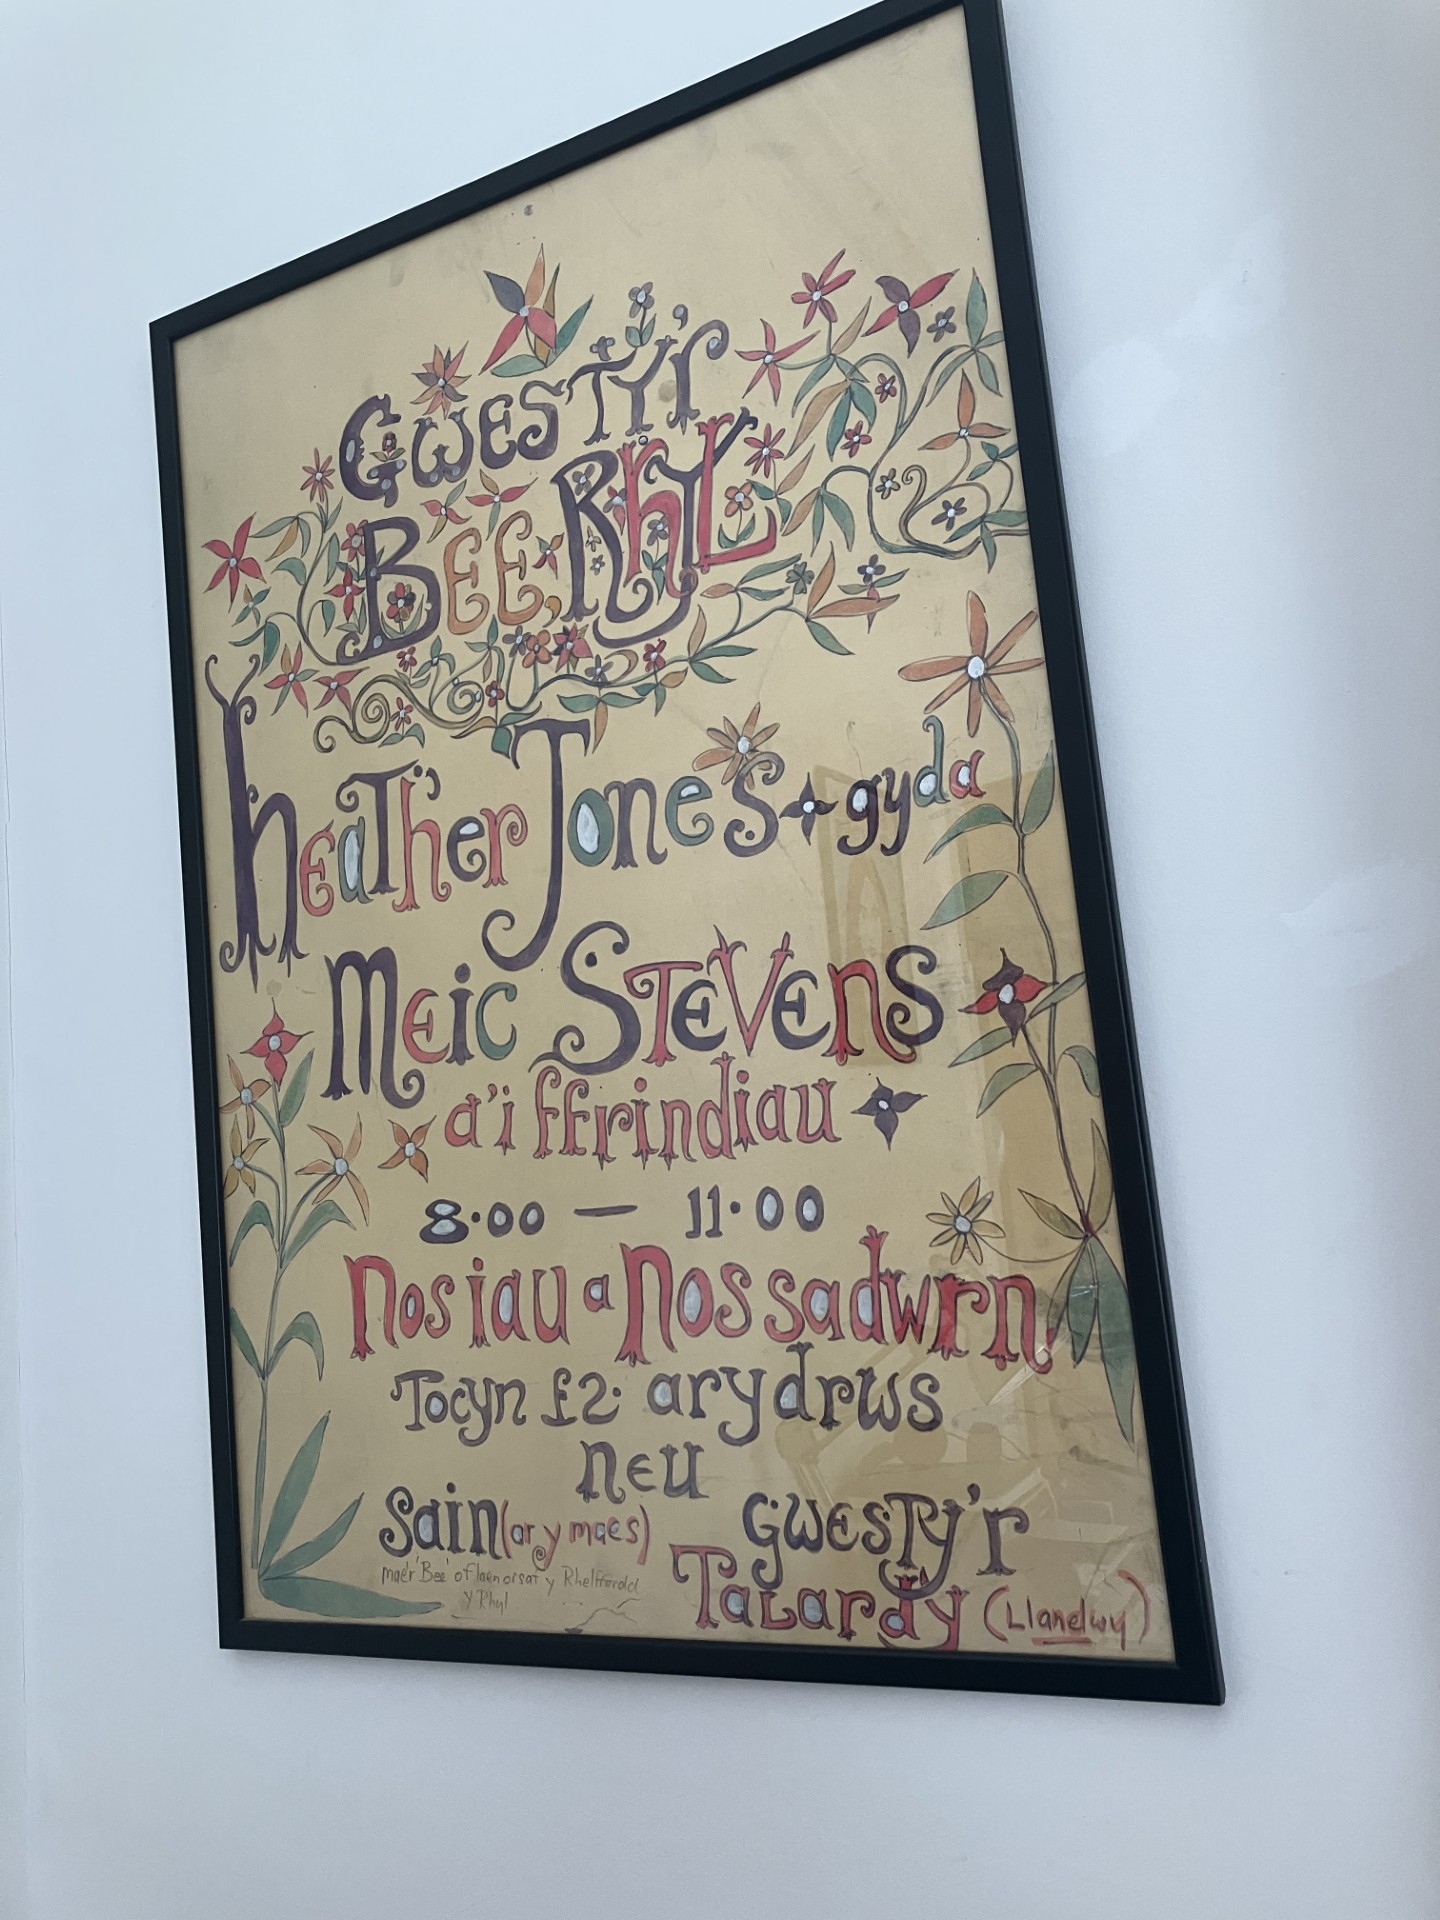 Gwesty'r
BEE, Rhyl
heather Jones + gyda
Meic Stevens
a'i ffrindiau
8.00 — 11.00
Nos iau a Nos sadwrn
Tocyn £2. ar y drws
neu
Sain (ar y maes)
mae'r 'Bee' o flaen orsaf y Rheilffordd
Y Rhyl
Gwesty'r
Talardy (Llanelwy)